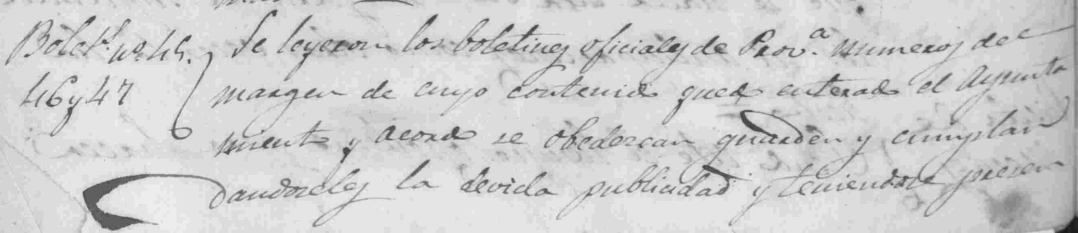 Bolet.s nos 45.
46 y 47
Se leyeron los boletines oficiales de Prov.a numeros del
margen de cuyo contenido quedó enterado el Ayunta
miento y acordó se obedezcan guarden y cumplan
dandoseles la devida publicidad y teniendose presen